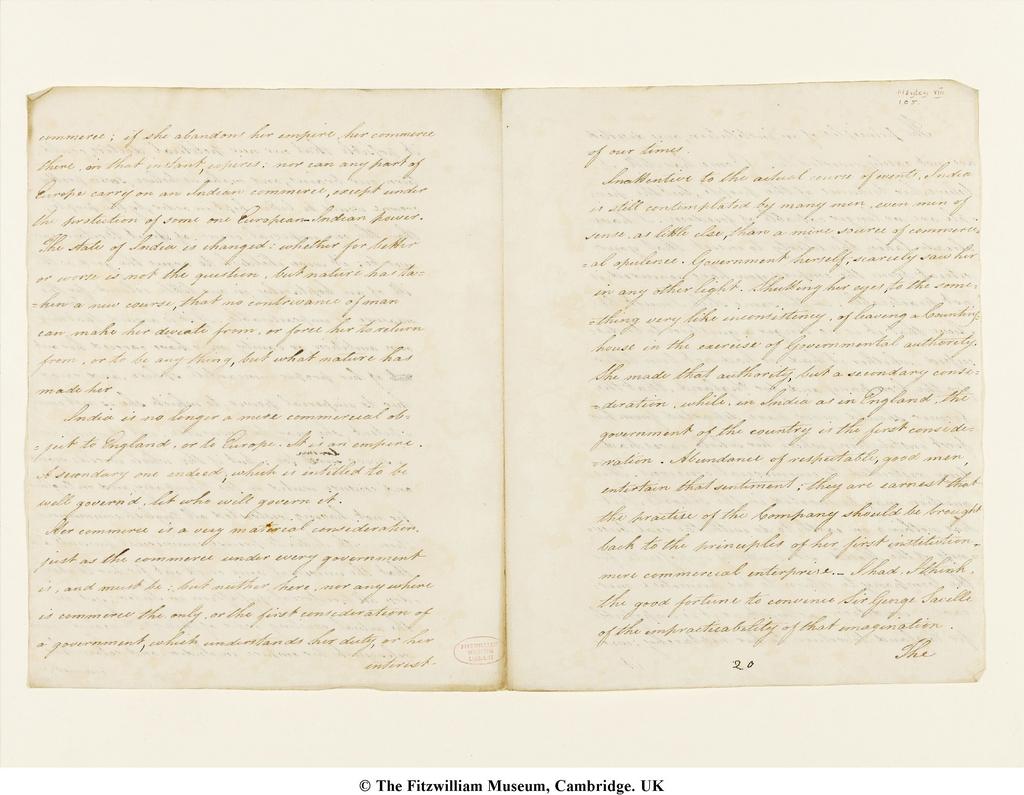 commerce; if she abandons her empire, her commerce
there, in that instant, expires: nor can any part of
Europe carry on an Indian commerce, except under
the protection of some one European-Indian power.
The state of India is changed: whether for better
or worse is not the question, but nature has ta=
=ken a new course, that no contrivance of man
can make her deviate from, or force her to return
from, or to be any thing, but what nature has
made her.
India is no longer a mere commercial ob=
=ject to England, or to Europe. It is an empire.
A secondary one indeed, which is intitled to be
well govern'd, let who will govern it.
Her commerce is a very material consideration,
just as the commerce under every government
is, and must be: but neither here, nor any where
is commerce the only, or the first consideration of
a government, which understands her duty, or her
interest.
FITZWILLIAM
MUSEUM
Hayley VIII
105.
of our times.
Inattentive to the actual course of events, India
is still contemplated by many men, even men of
sense, as little else, than a mere source of commerci
=al opulence. Government herself, scarcely saw her
in any other light. Shutting her eyes, to the some=
=thing very like inconsistency, of leaving a Counting
house in the exercise of Governmental authority.
She made that authority, but a secondary consi=
=deration, while, in India as in England, the
government of the country is the first conside=
=ration. Abundance of respectable, good men,
entertain that sentiment; they are earnest that
the practise of the Company should be brought
back to the principles of her first institution,
mere commercial enterprise. - I had, I think,
the good fortune to convince Sir George Saville
of the impracticability of that imagination.
The
20
© The Fitzwilliam Museum, Cambridge. UK